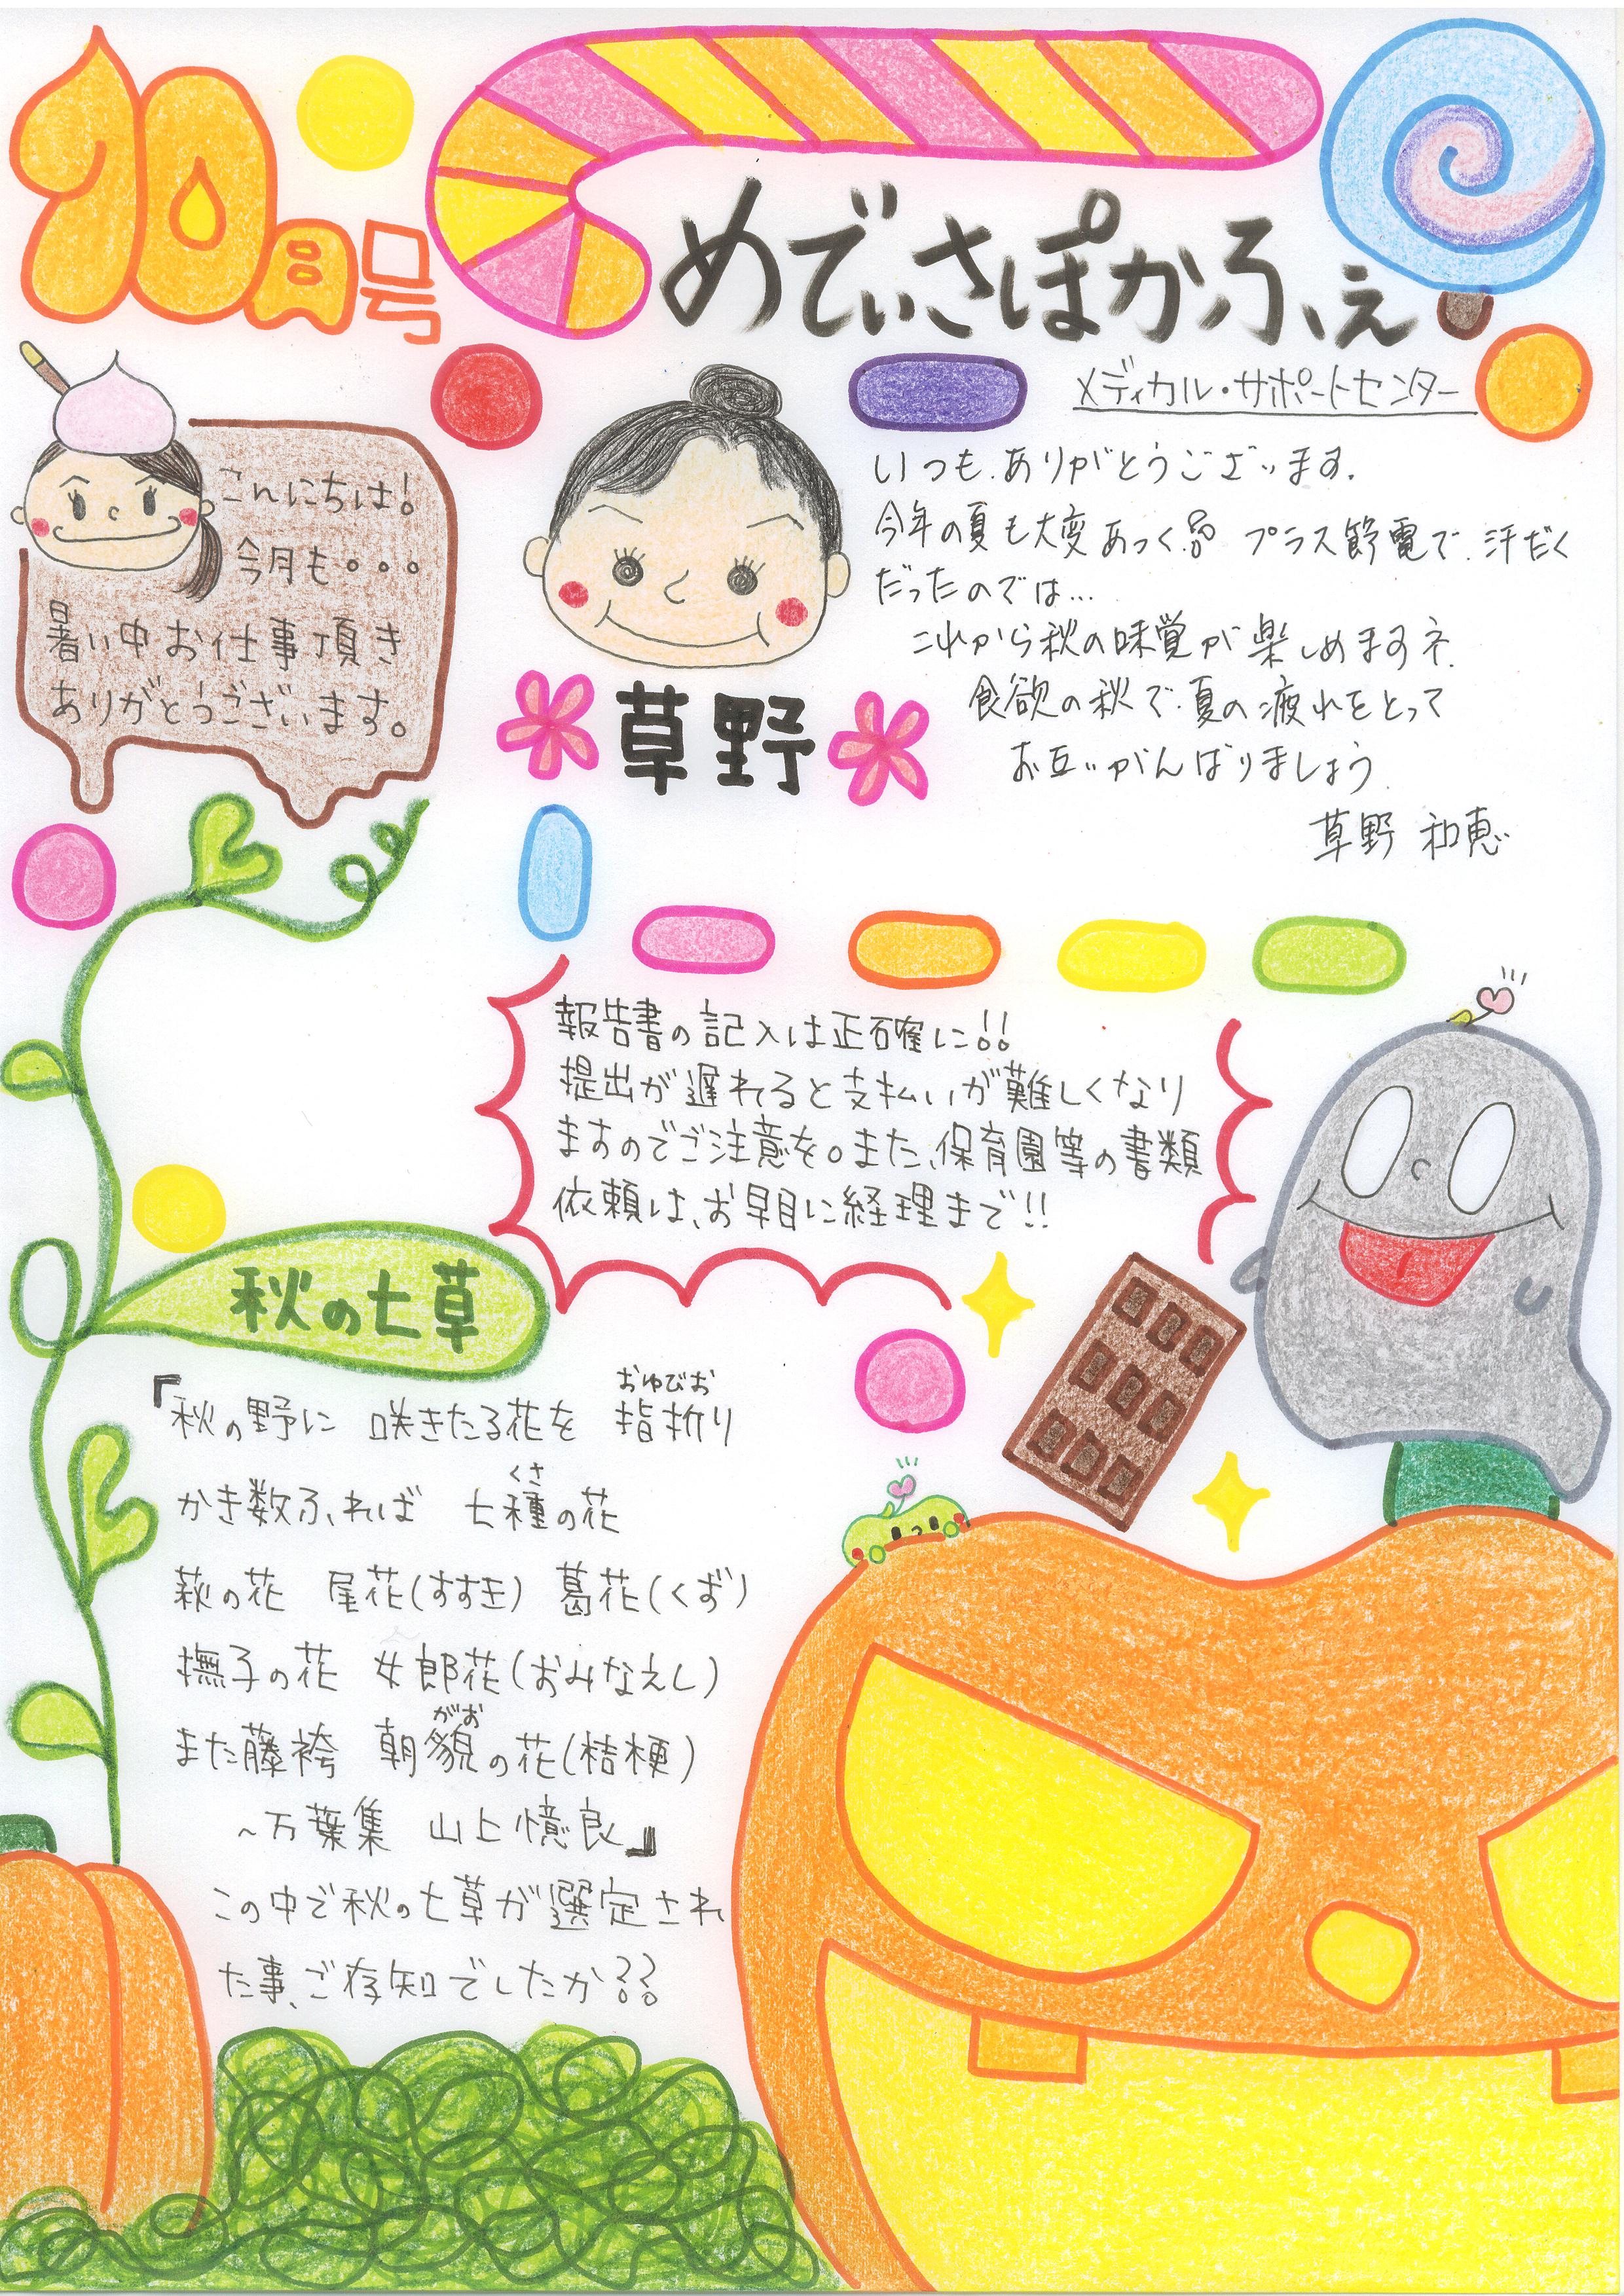 10月号
めでぃさぽかふぇ
メディカル・サポートセンター
こんにちは!
今月も。。。
暑い中お仕事頂き
ありがとうございます。
草野
いつも、ありがとうございます。
今年の夏も大変あつく!! プラス節電で、汗だく
だったのでは…
これから秋の味覚が楽しめますネ。
食欲の秋で、夏の疲れをとって
お互いがんばりましょう。
草野 和恵
報告書の記入は正確に!!
提出が遅れると支払いが難しくなり
ますのでご注意を。また、保育園等の書類
依頼は、お早目に経理まで!!
秋の七草
おゆびお
『秋の野に 咲きたる花を 指折り
くさ
かき数ふれば 七種の花
萩の花 尾花(すすき) 葛花(くず)
撫子の花 女郎花(おみなえし)
がお
また藤袴 朝貌の花(桔梗)
~万葉集 山上憶良』
この中で秋の七草が選定され
た事、ご存知でしたか??